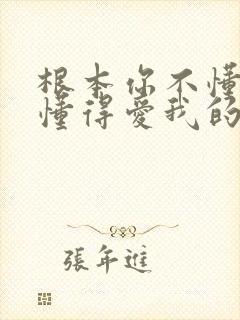 根本你不懂
懂得愛我的
張年進